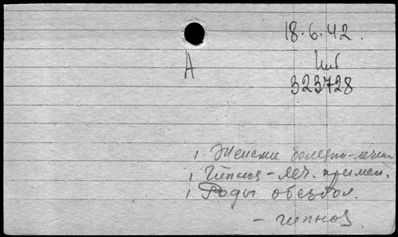 18.6.42.
А
Инв
323728
1. Женские болезни-лечен
1. Гипноз - леч. примен.
1. Роды обезбол.
- гипноз